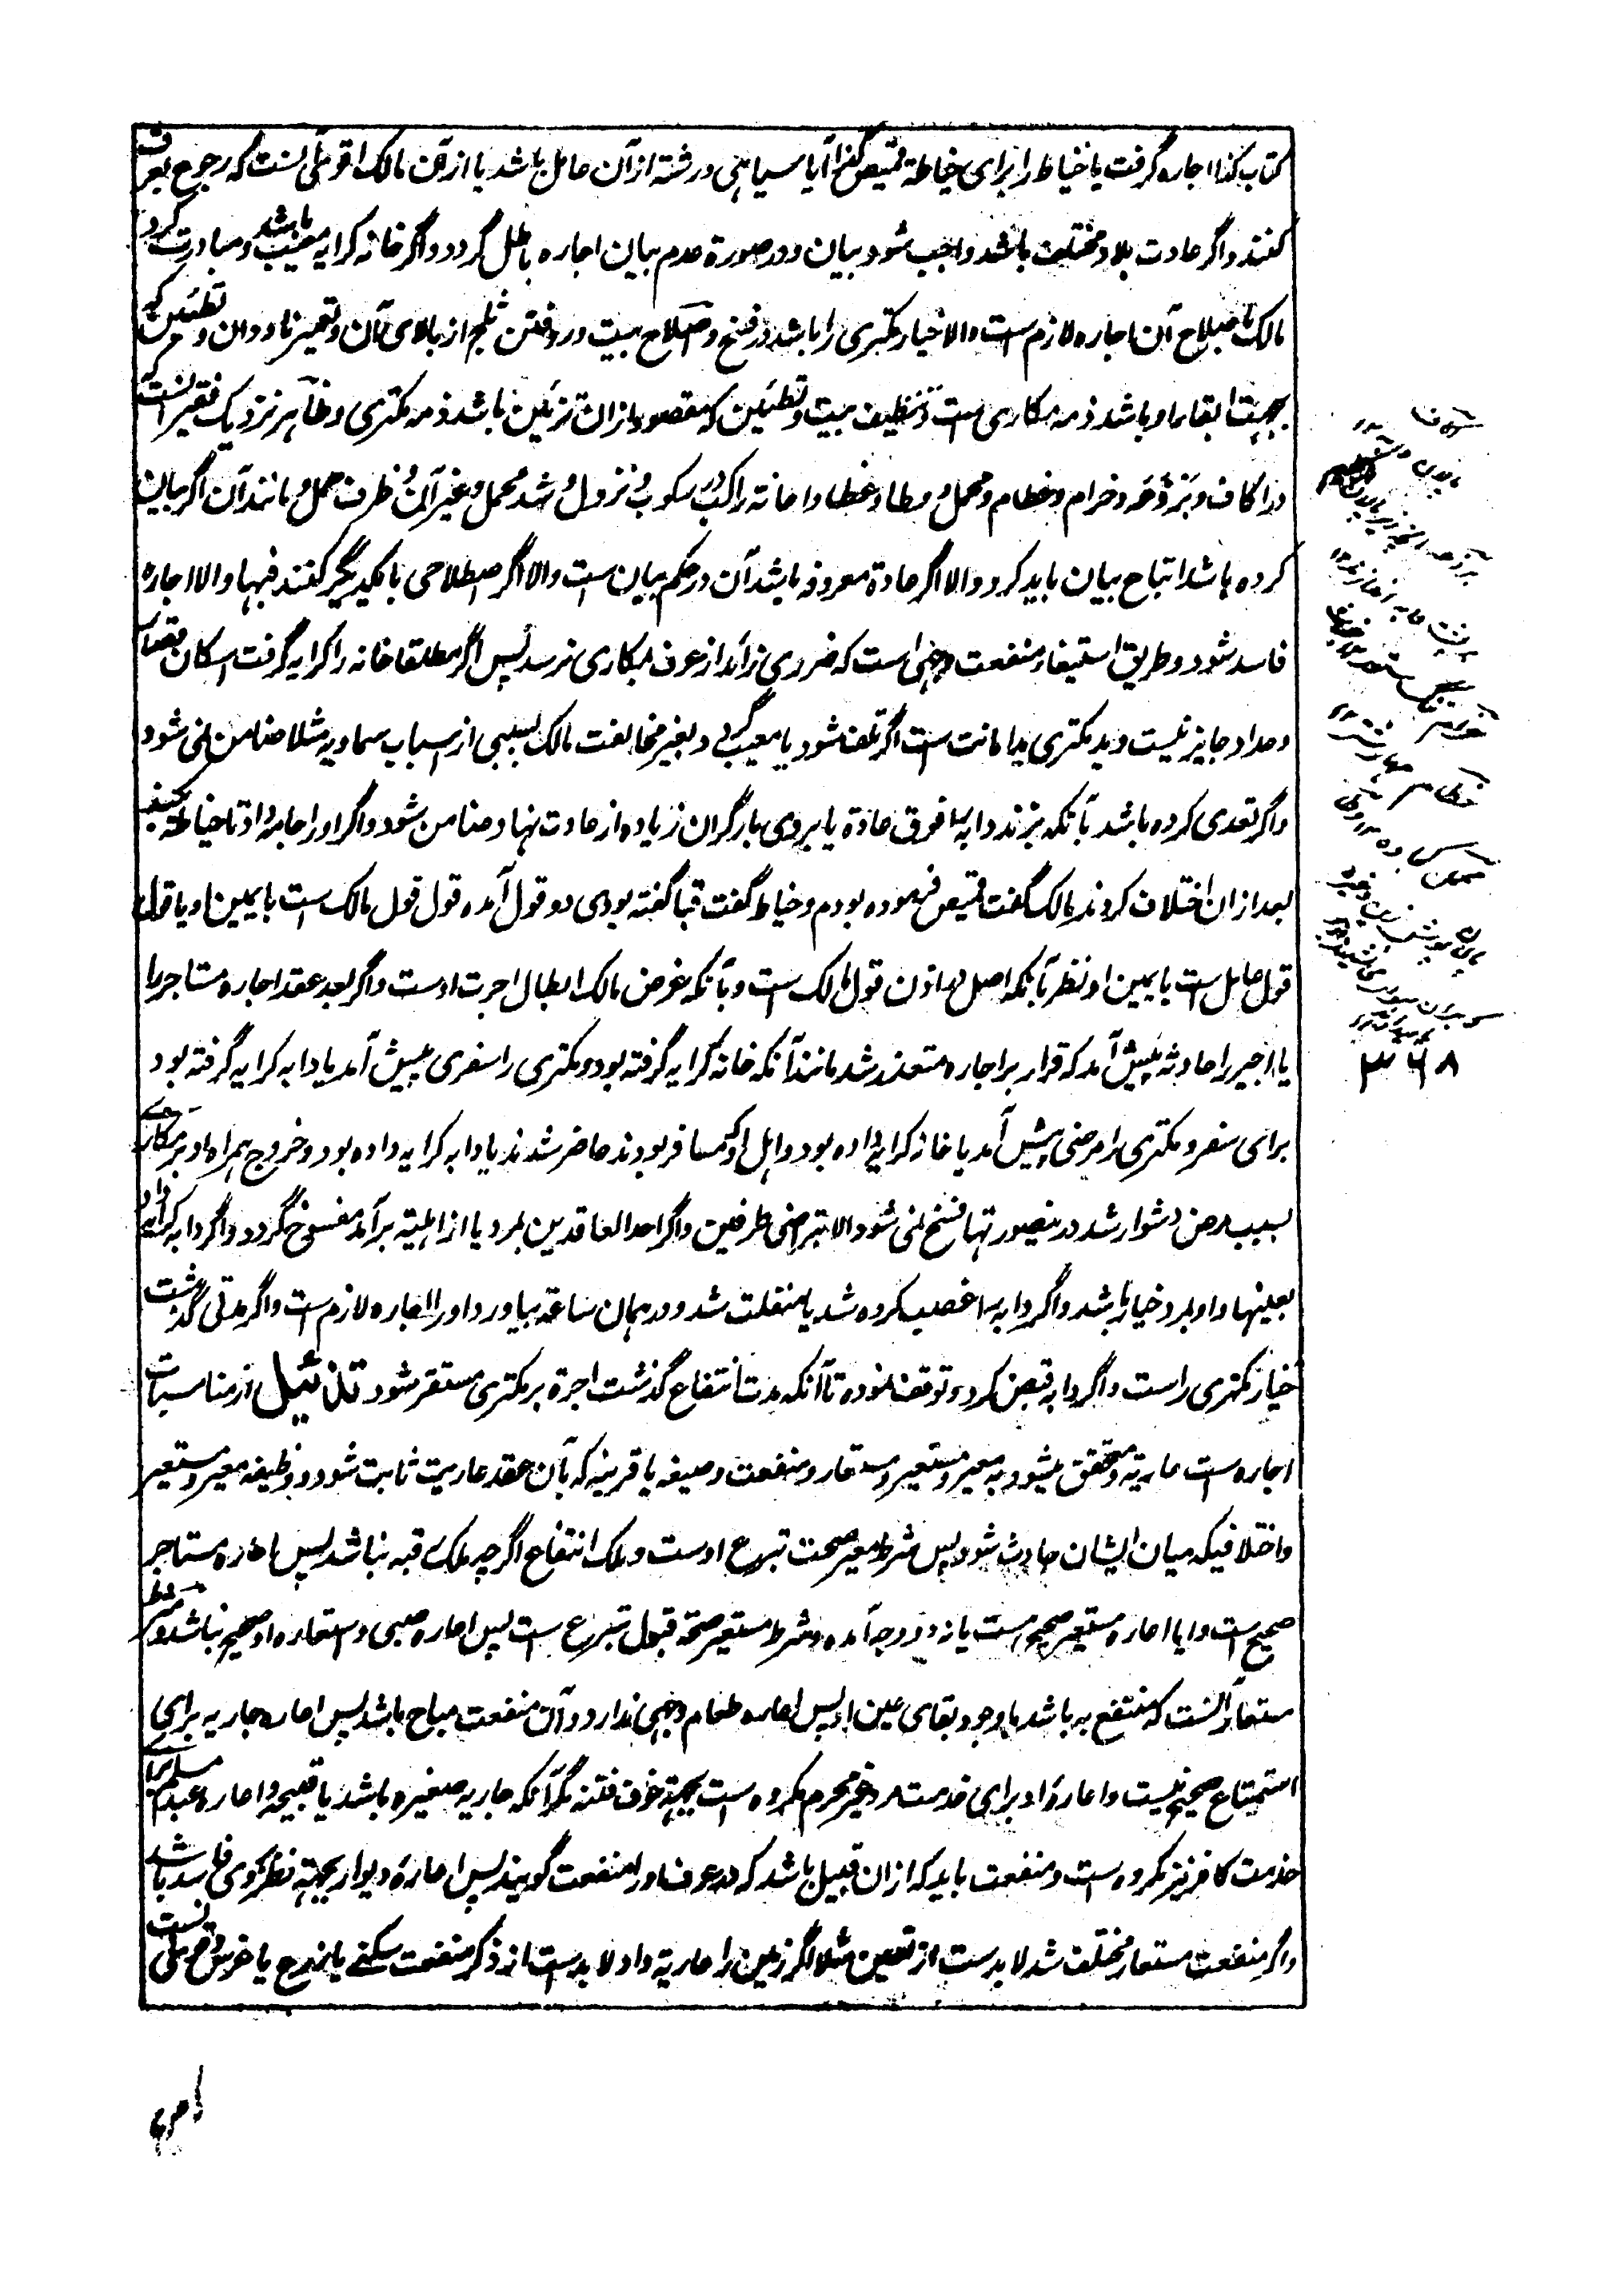 کتاب کذا اجاره گرفت یا خیاط را برای خیاطة قمیص کذا آیا سیاهی ورشته از آن عامل باشد یا از آن مالک اقوی آنست که رجوع بعرف
کنند و اگر عادت بلاد مختلف باشد واجب شود بیان و در صورة عدم بیان اجاره باطل گردد و اگر خانه کرایه معیب باشد و مبادرت کرد
مالک باصلاح آن اجاره لازم است والا خیار مکتری را باشد در فسخ و اصلاح بیت و روفتن ثلج از بالای آن و تعمیر ناودان و تطیین که
بجهت ابقاء او باشد ذمه مکاری است و تنظیف بیت و تطیین که مقصود از ان تزیین باشد ذمه مکتری و ظاهر نزدیک فقیر آنست که
در اکاف و برذعه و خرام و خطام و محمل و وطا و غطا و اعانه راکب در رکوب و نزول و شد محمل و غیر آن و ظرف حمل و مانند آن اگر بیان
کرده باشد اتباع بیان باید کرد و الا اگر عادة معروفه باشد آن در حکم بیان است والا اگر اصطلاحی بایکدیگر کنند فبها والا اجاره
فاسد شود و طریق استیفاء منفعت وجهی است که ضرری زاید از عرف بمکاری نرسد پس اگر مطلقا خانه را کرایه گرفت اسکان قصاب
و حداد جایز نیست و ید مکتری ید امانت است اگر تلف شود یا معیب گردد بغیر مخالفت مالک بسببی از اسباب سماویه مثلا ضامن نمی شود
و اگر تعدی کرده باشد بآنکه بزند دابه را فوق عادة یا بروی بار گران زیاده از عادت نهاد ضامن شود و اگر او را جامه داد تا خیاطه کند
بعد از ان اختلاف کردند مالک گفت قمیص فرموده بودم و خیاط گفت قبا گفته بودی دو قول آمده قول قول مالک است با یمین او یا قول
قول عامل است با یمین او نظر بآنکه اصل در اذن قول مالک است و بآنکه غرض مالک ابطال اجرت اوست و اگر بعد عقد اجاره مستاجر را
یا اجیر را حادثه پیش آمد که قرار بر اجاره متعذر شد مانند آنکه خانه کرایه گرفته بود و مکتری را سفری پیش آمد یا دابه کرایه گرفته بود
برای سفر و مکتری را مرضی پیش آمد یا خانه کرایه داده بود و اهل او که مسافر بودند حاضر شدند یا دابه کرایه داده بود و خروج همراه او بر مکاری
بسبب مرض دشوار شد در ینصورتها فسخ نمی شود الا بتراضی طرفین و اگر احد العاقدین بمرد یا از اهلیة برآمد مفسوخ گردد و اگر دابه کرایه داد
بعینها و او بمرد خیار باشد و اگر دابه را غصب کرده شد یا منفلت شد و در همان ساعة بیاورد او را اجاره لازم است و اگر مدتی گذشت
خیار مکتری راست و اگر دابه قبض کرد و توقف نموده تا آنکه مدت انتفاع گذشت اجرة بر مکتری مستقر شود تذئیل از مناسبات
اجاره است عاریة و محقق میشود به معیر و مستعیر و مستعار و منفعت و صیغه یا قرینه که بآن عقد عاریت ثابت شود و وظیفه معیر و مستعیر
و اختلافیکه میان ایشان حادث شود پس شرط معیر صحت تبرع اوست و ملک انتفاع اگرچه ملک رقبه نباشد پس اعاره مستاجر
صحیح است و ایا اعاره مستعیر صحیح است یا نه دو وجه آمده و شرط مستعیر صحة قبول تبرع است پس اعاره صبی و استعاره او صحیح نباشد و شرط
مستعار آنست که منتفع به باشد با وجود بقای عین او پس اعاره طعام وجهی ندارد و آن منفعت مباح باشد پس اعاره جاریه برای
استمتاع صحیح نیست و اعاره او برای خدمت مرد غیر محرم مکروه است بجهة خوف فتنه مگر آنکه جاریه صغیره باشد یا قبیحه و اعاره عبد مسلم برای
خدمت کافر نیز مکروه است و منفعت باید که از ان قبیل باشد که در عرف او را منفعت گویند پس اعارهٔ دیوار بجهة نظر کوی فاسد باشد
و اگر منفعت مستعار مختلف شد لابد ست از تعیین مثلا اگر زمین را عاریة داد لابد است از ذکر منفعت سکنے یا زرع یا غرس و قوی آنست
۳۶۸